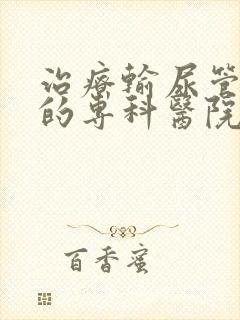 治療輸尿管
的專科醫院
百香蜜